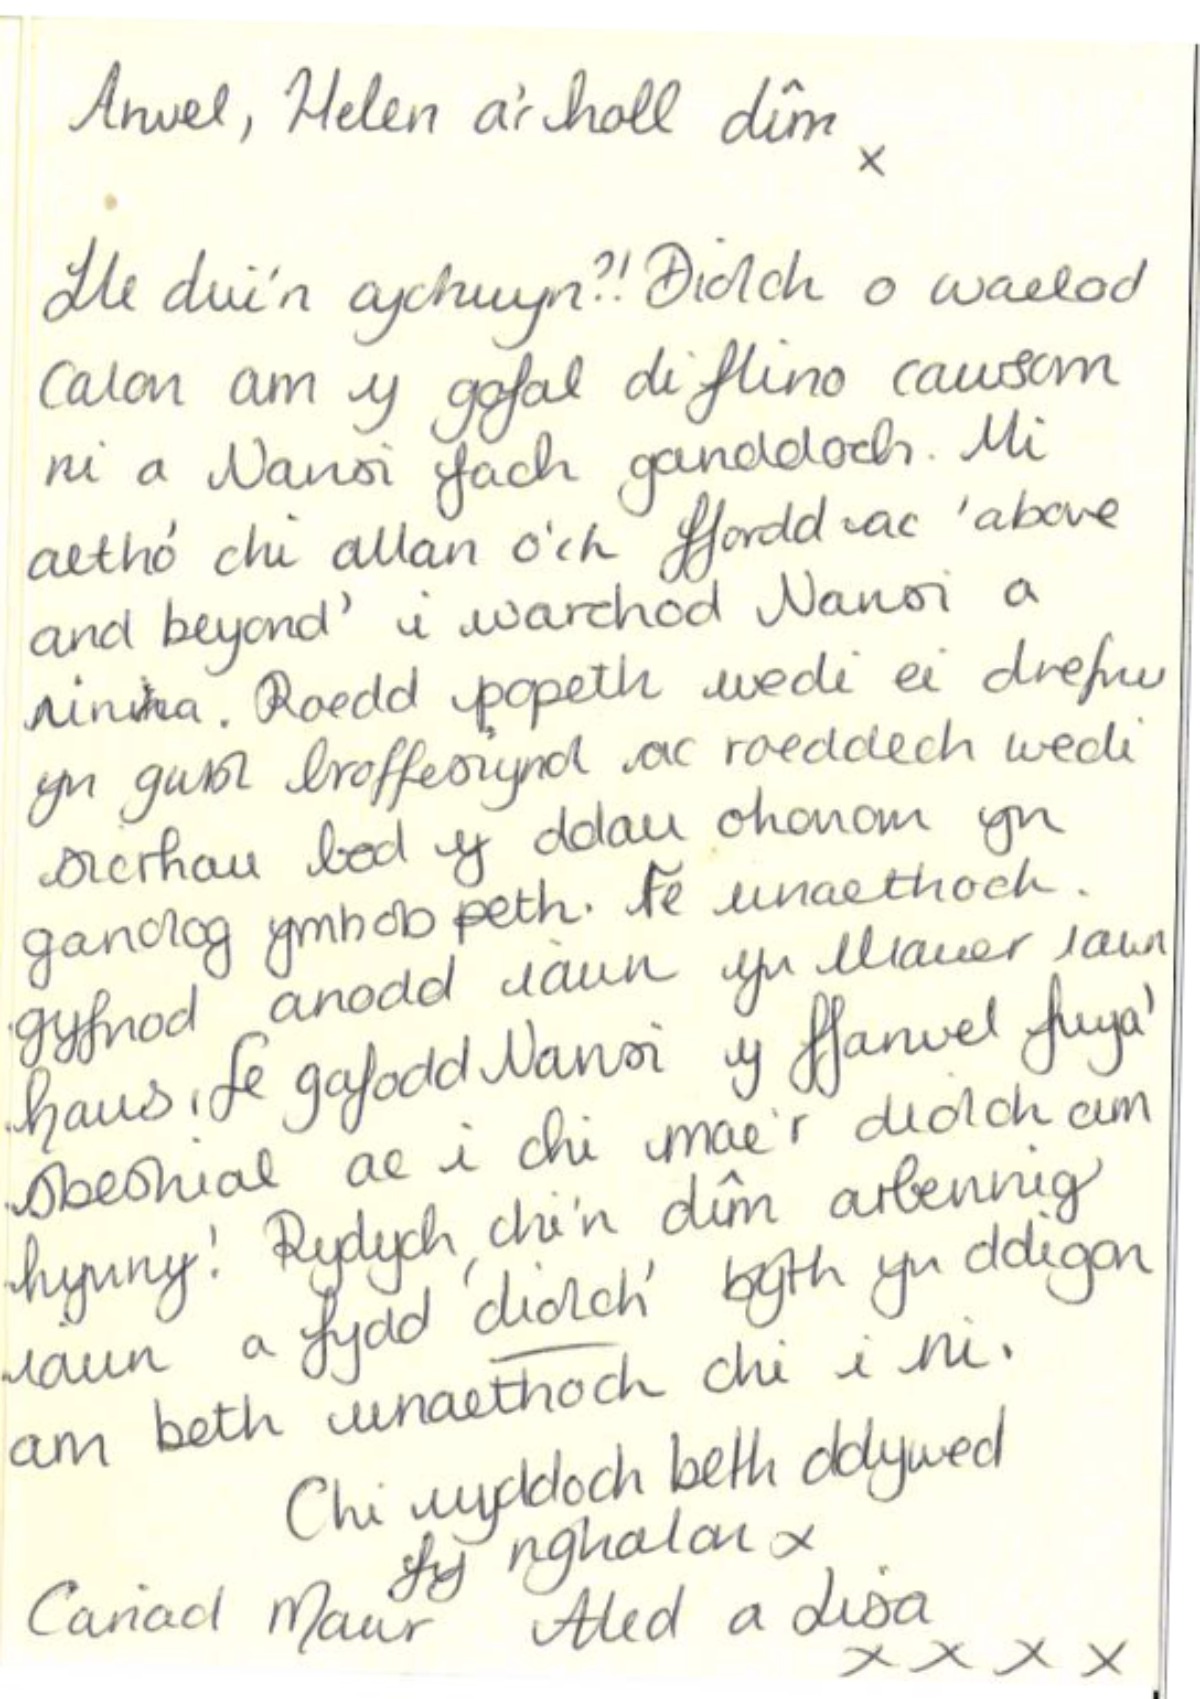 Anwel, Helen a'r holl dîm x
Lle dwi'n cychwyn?! Diolch o waelod
calon am y gofal diflino cawsom
ni a Nansi fach ganddoch. Mi
aetho' chi allan o'ch ffordd ac 'above
and beyond' i warchod Nansi a
ninna. Roedd popeth wedi ei drefnu
yn gwbl broffesiynol ac roeddech wedi
sicrhau bod y ddau ohonom yn
ganolog ymhob peth. Fe wnaethoch.
gyfnod anodd iawn yn llawer iawn
haws, fe gafodd Nansi y ffarwel fwya'
sbeshial ac i chi mae'r diolch am
hynny! Rydych chi'n dîm arbennig
iawn a fydd 'diolch' byth yn ddigon
am beth wnaethoch chi i ni.
Chi wyddoch beth ddywed
fy nghalon x
Cariad Mawr Aled a Lisa
x x x x